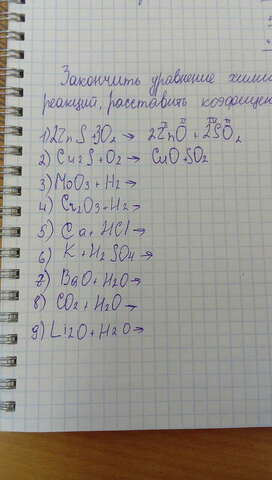 Закончить уравнение хими
реакций, расставить коэффициен
1) 2ZnS+3O₂ → 2ZnO + 2SO₂
2) Cu₂S+O₂ → CuO+SO₂
3) MoO₃+H₂→
4) Cr₂O₃+H₂→
5) Ca+HCl→
6) K+H₂SO₄→
7) BaO+H₂O→
8) CO₂+H₂O→
9) Li₂O+H₂O→